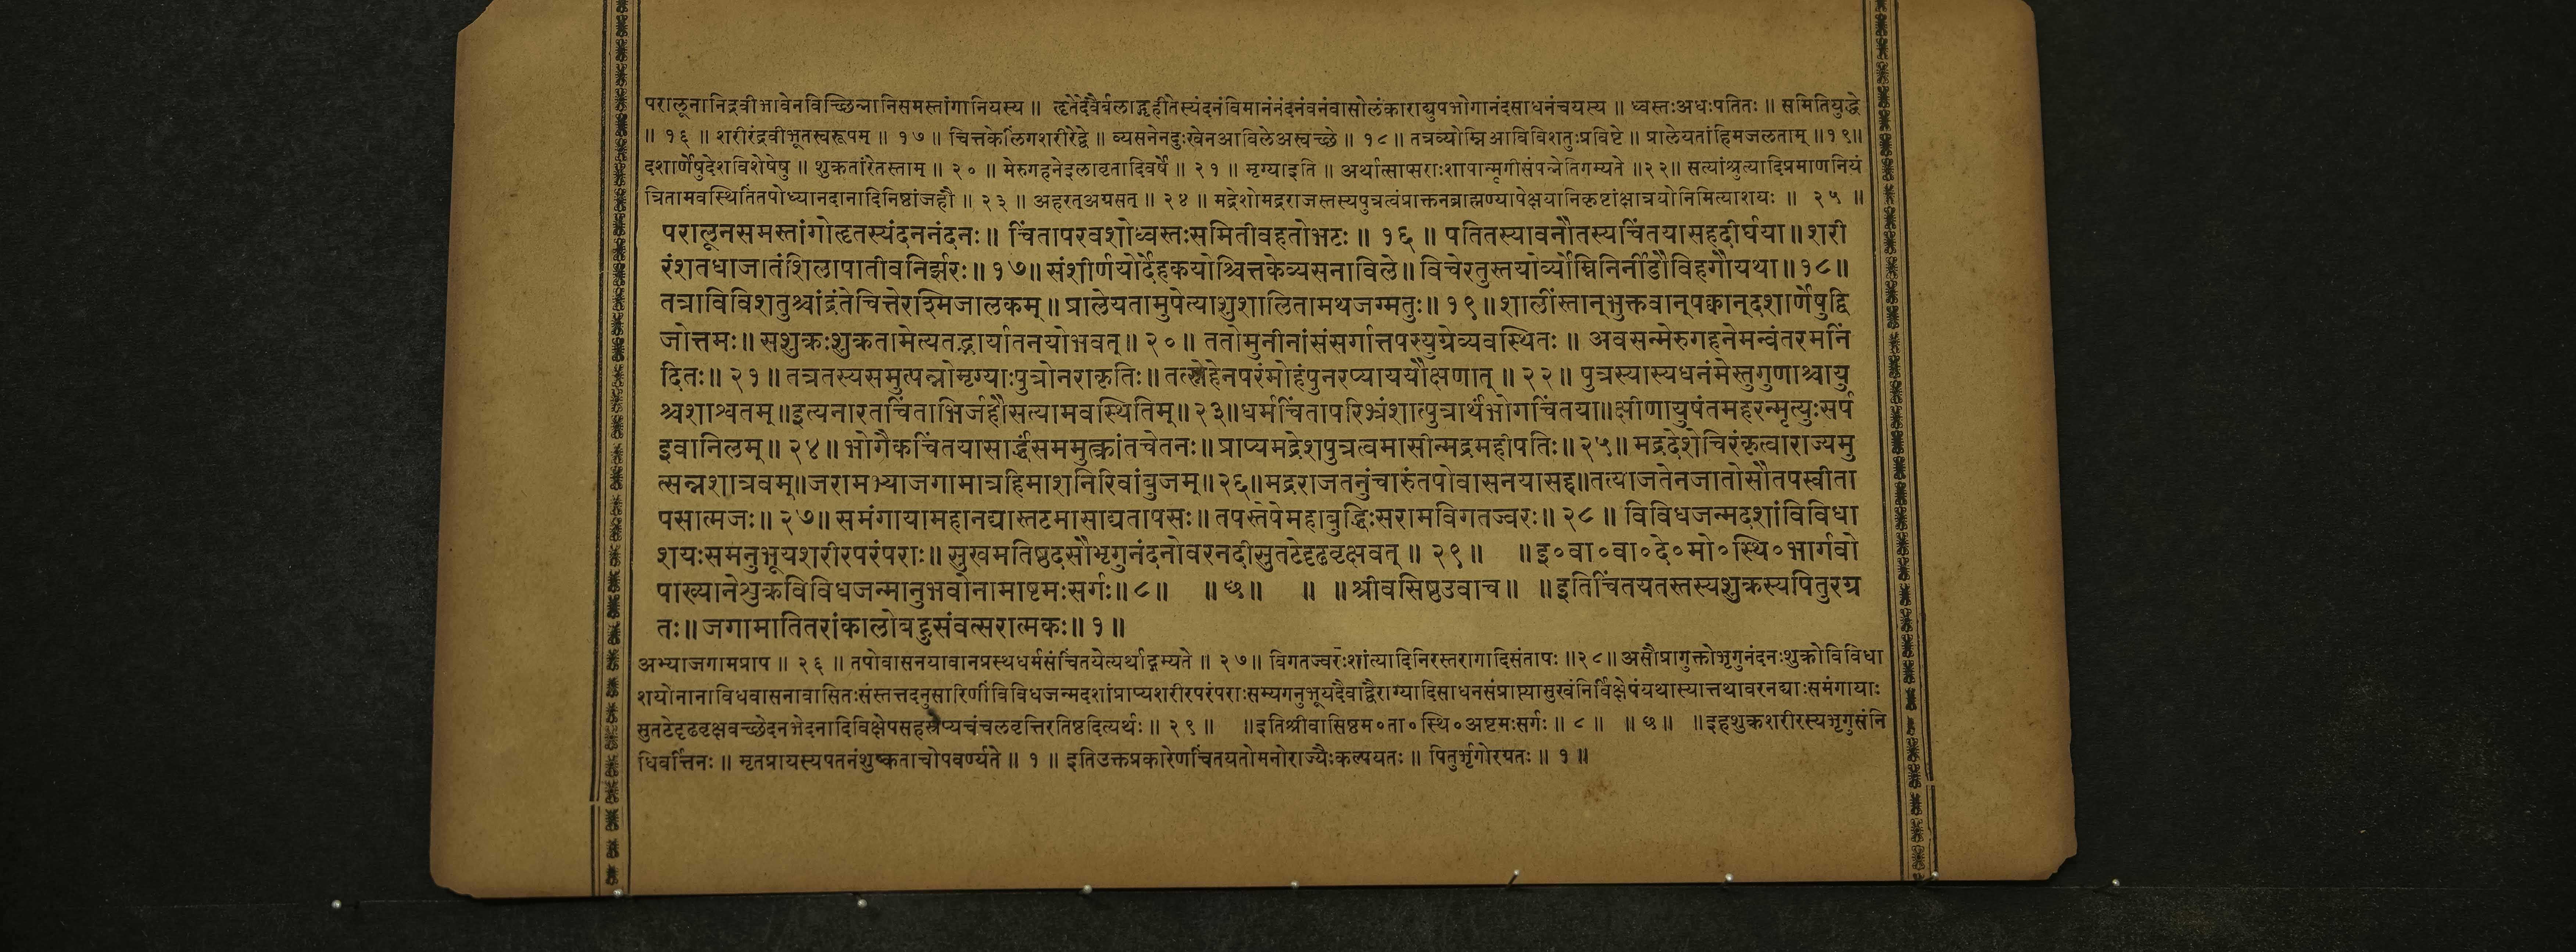 परालूनानिद्रवीभावेनविच्छिन्नानिसमस्तांगानियस्य ॥ हृतेदेवैर्बलाद्गृहीतेस्यंदनंविमानंनंदनंवनंवासोलंकाराद्युपभोगानंदसाधनंचयस्य ॥ ध्वस्तःअधःपतितः ॥ समितियुद्धे
॥ १६ ॥ शरीरंद्रवीभूतस्वरूपम् ॥ १७ ॥ चित्तकेलिंगशरीरेद्वे ॥ व्यसनेनदुःखेनआविलेअस्वच्छे ॥ १८ ॥ तत्रव्योम्निआविविशतुःप्रविष्टे ॥ प्रालेयतांहिमजलताम् ॥१९॥
दशार्णेषुदेशविशेषेषु ॥ शुक्रतांरेतस्ताम् ॥ २० ॥ मेरुगहनेइलावृतादिवर्षे ॥ २१ ॥ मृग्याइति ॥ अर्थात्साप्सराःशापान्मृगीसंपन्नेतिगम्यते ॥२२॥ सत्यांश्रुत्यादिप्रमाणनियं
त्रितामवस्थितिंतपोध्यानदानादिनिष्ठांजहौ ॥ २३ ॥ अहरत्अग्रसत् ॥ २४ ॥ मद्रेशोमद्रराजस्तस्यपुत्रत्वंप्राक्तनब्राह्मण्यापेक्षयानिकृष्टांक्षात्रयोनिमित्याशयः ॥ २५ ॥
परालूनसमस्तांगोहृतस्यंदननंदनः॥ चिंतापरवशोध्वस्तःसमितीवहतोभटः ॥ १६ ॥ पतितस्यावनौतस्यचिंतयासहदीर्घया॥शरी
रंशतधाजातंशिलापातीवनिर्झरः॥१७॥संशीर्णयोर्देहकयोश्चित्तकेव्यसनाविले॥ विचेरतुस्तयोर्व्योम्निनिर्नीडौविहगौयथा॥१८॥
तत्राविविशतुश्चांद्रंतेचित्तेरश्मिजालकम्॥ प्रालेयतामुपेत्याशुशालितामथजग्मतुः॥१९॥शालींस्तान्भुक्तवान्पक्वान्दशार्णेषुद्वि
जोत्तमः॥ सशुक्रःशुक्रतामेत्यतद्भार्यातनयोभवत्॥ २०॥ ततोमुनीनांसंसर्गात्तपस्युग्रेव्यवस्थितः ॥ अवसन्मेरुगहनेमन्वंतरमनिं
दितः॥ २१॥ तत्रतस्यसमुत्पन्नोमृग्याःपुत्रोनराकृतिः॥ तत्स्नेहेनपरंमोहंपुनरप्याययौक्षणात् ॥ २२॥ पुत्रस्यास्यधनंमेस्तुगुणाश्चायु
श्चशाश्वतम्॥इत्यनारतचिंताभिर्जहौसत्यामवस्थितिम्॥२३॥धर्मचिंतापरिभ्रंशात्पुत्रार्थंभोगचिंतया॥क्षीणायुषंतमहरन्मृत्युःसर्प
इवानिलम्॥ २४॥भोगैकचिंतयासार्द्धंसममुत्क्रांतचेतनः॥ प्राप्यमद्रेशपुत्रत्वमासीन्मद्रमहीपतिः॥२५॥ मद्रदेशेचिरंकृत्वाराज्यमु
त्सन्नशात्रवम्॥जरामभ्याजगामात्रहिमाशनिरिवांबुजम्॥२६॥मद्रराजतनुंचारुंतपोवासनयासह॥तत्याजतेनजातोसौतपस्वीता
पसात्मजः॥ २७॥ समंगायामहानद्यास्तटमासाद्यतापसः॥ तपस्तेपेमहाबुद्धिःसरामविगतज्वरः॥ २८॥ विविधजन्मदशांविविधा
शयःसमनुभूयशरीरपरंपराः॥ सुखमतिष्ठदसौभृगुनंदनोवरनदीसुतटेदृढवृक्षवत् ॥ २९॥ ॥इ०वा०वा०दे०मो०स्थि०भार्गवो
पाख्यानेशुक्रविविधजन्मानुभवोनामाष्टमःसर्गः॥८॥ ॥ छ॥ ॥ ॥श्रीवसिष्ठउवाच॥ ॥इतिचिंतयतस्तस्यशुक्रस्यपितुरग्र
तः॥ जगामातितरांकालोबहुसंवत्सरात्मकः॥ १॥
अभ्याजगामप्राप ॥ २६ ॥ तपोवासनयावानप्रस्थधर्मसंचिंतयेत्यर्थाद्गम्यते ॥ २७॥ विगतज्वरःशांत्यादिनिरस्तरागादिसंतापः ॥२८॥ असौप्रागुक्तोभृगुनंदनःशुक्रोविविधा
शयोनानाविधवासनावासितःसंस्तत्तदनुसारिणींविविधजन्मदशांप्राप्यशरीरपरंपराःसम्यगनुभूयदैवाद्वैराग्यादिसाधनसंप्राप्त्यासुखंनिर्विक्षेपंयथास्यात्तथावरनद्याःसमंगायाः
सुतटेदृढवृक्षवच्छेदनभेदनादिविक्षेपसहस्रेप्यचंचलवृत्तिरतिष्ठदित्यर्थः॥ २९ ॥ ॥इतिश्रीवासिष्ठम०ता०स्थि०अष्टमःसर्गः॥ ८ ॥ ॥ छ॥ ॥इहशुक्रशरीरस्यभृगुसंनि
धिवर्त्तिनः ॥ मृतप्रायस्यपतनंशुष्कताचोपवर्ण्यते ॥ १ ॥ इतिउक्तप्रकारेणचिंतयतोमनोराज्यैःकल्पयतः ॥ पितुर्भृगोरग्रतः ॥ १ ॥